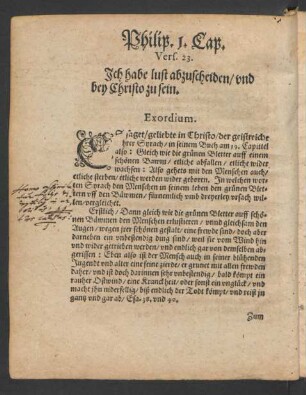 Philip. 1. Cap.
Vers. 23.
Ich habe lust abzuscheiden/ vnd
bey Christo zu sein.
Exordium.
ES saget/ geliebte in Christo/ der geistreiche
Lehrer Syrach/ in seinem Buch am 14. Capittel
also: Gleich wie die grünen Bletter auff einem
schönen Bawm/ etliche abfallen/ etliche wider
wachsen: Also gehets mit den Menschen auch/
etliche sterben/ etliche werden wider geboren. In welchen wor-
ten Syrach den Menschen in seinem leben den grünen Blet-
tern vff den Bäwmen/ fürnemlich vmb dreyerley vrsach wil-
len/ vergleichet.
Erstlich/ Dann gleich wie die grünen Bletter auff schö-
nen Bäwmen den Menschen erlustieren/ vnnd gleichsam den
Augen/ wegen jrer schönen gestalt/ eine frewde sind/ doch aber
darneben ein vnbestendig ding sind/ weil sie vom Wind hin
vnd wider getrieben werden/ vnd endlich gar von demselben ab-
gerissen: Eben also ist der Mensch auch in seiner blühenden
Jugendt vnd alter eine seine zierde/ er grünet mit allen frewden
daher/ vnd ist doch darinnen sehr vnbestendig/ bald kömpt ein
rauher Ostwind/ eine Kranckheit/ oder sonst ein vnglück/ vnd
macht jhn niderfellig/ biß endlich der Todt kömpt/ vnd reist jn
gantz vnd gar ab/ Esa. 38. vnd 40.
Zum